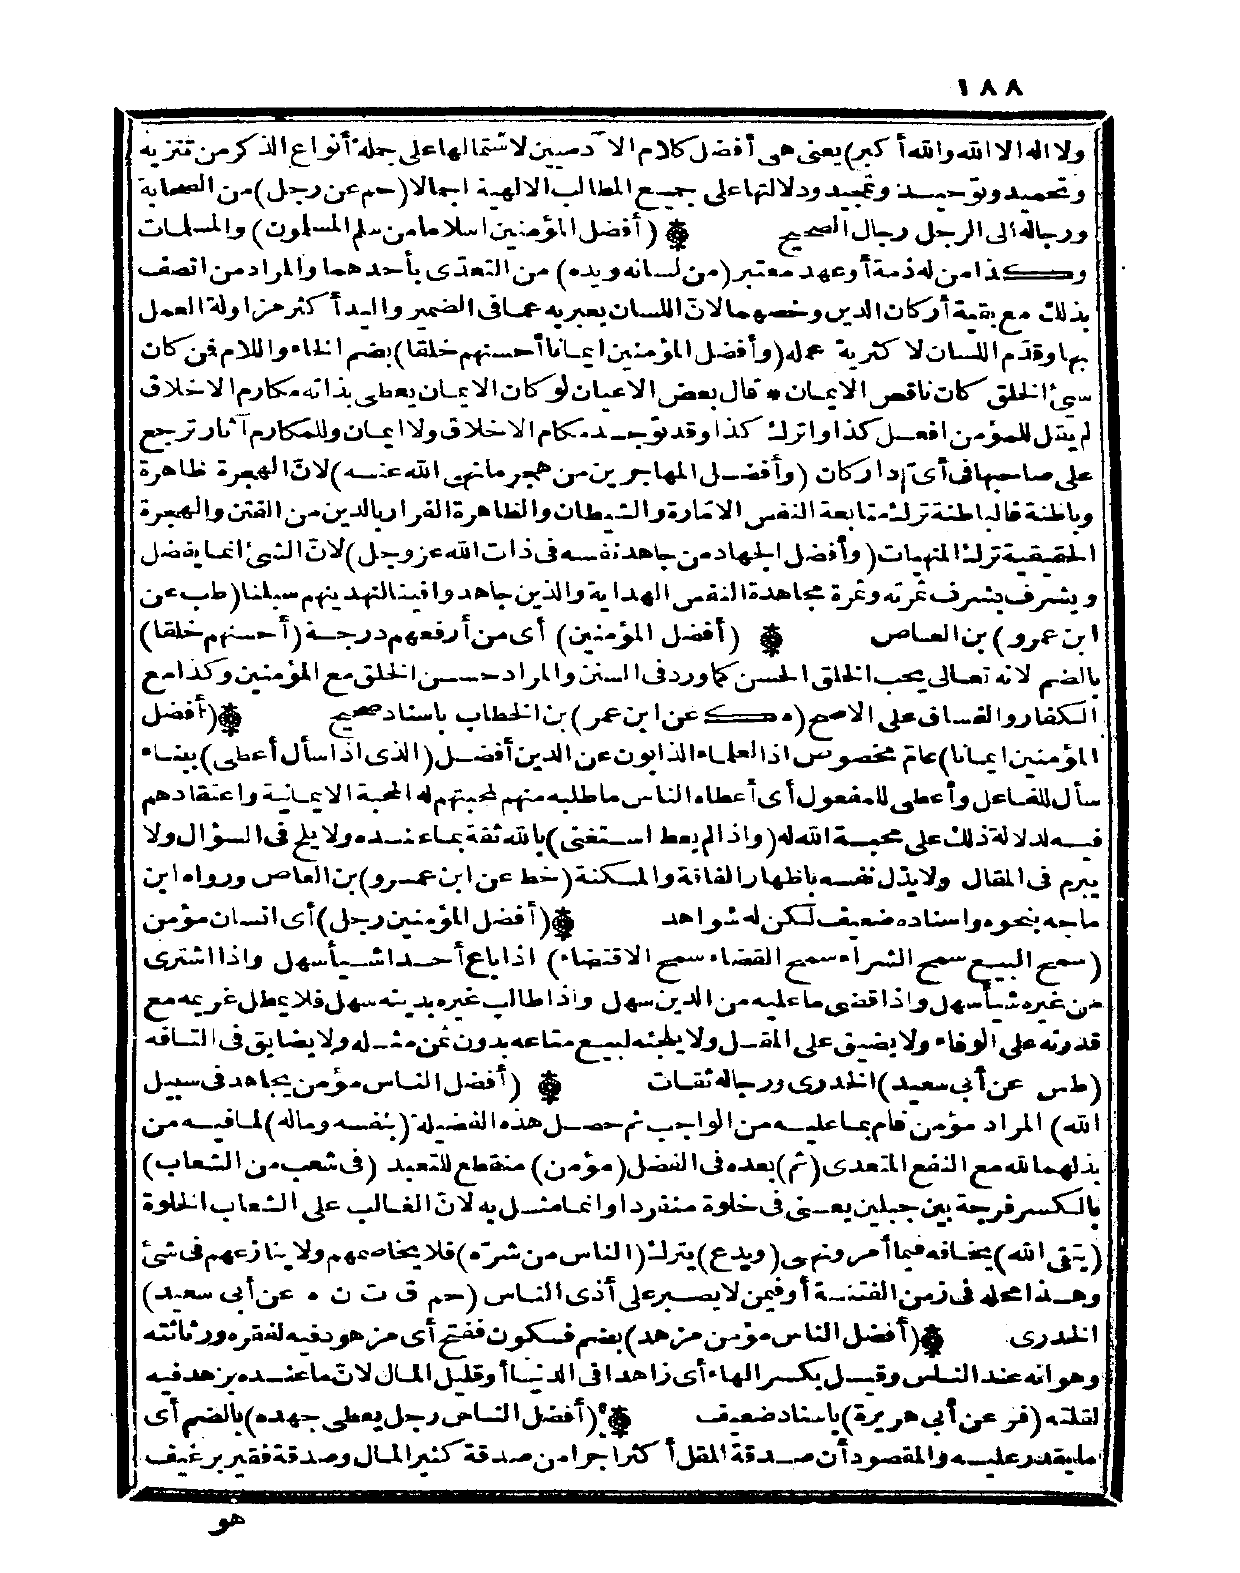 ١٨٨
ولا اله الا الله والله أكبر) يعنى هى أفضل كلام الآدميين لاشتمالها على جملة أنواع الذكر من تنزيه
وتحميد وتوحيد وتمجيد ودلالتها على جميع المطالب الالهية اجمالا (حم عن رجل) من الصحابة
ورجاله الى الرجل رجال الصحيح ۞ (أفضل المؤمنين اسلاما من سلم المسلمون) والمسلمات
وكذا من له ذمة أو عهد معتبر (من لسانه ويده) من التعدّى بأحدهما والمراد من اتصف
بذلك مع بقية أركان الدين وخصهما لانّ اللسان يعبر به عما فى الضمير واليد أكثر مزاولة العمل
بها وقدّم اللسان لاكثرية عمله (وأفضل المؤمنين ايمانا أحسنهم خلقا) بضم الخاء واللام فمن كان
سيئ الخلق كان ناقص الايمان * قال بعض الاعيان لو كان الايمان يعطى بذاته مكارم الاخلاق
لم يقل للمؤمن افعل كذا واترك كذا وقد توجد مكام الاخلاق ولا ايمان وللمكارم آثار ترجع
على صاحبها فى أىّ دار كان (وأفضل المهاجرين من هجر ما نهى الله عنه) لانّ الهجرة ظاهرة
وباطنة فالباطنة ترك متابعة النفس الامّارة والشيطان والظاهرة الفرار بالدين من الفتن والهجرة
الحقيقية ترك المنهيات (وأفضل الجهاد من جاهد نفسه فى ذات الله عز وجل) لانّ الشئ انما يفضل
ويشرف بشرف ثمرته وثمرة مجاهدة النفس الهداية والذين جاهدوا فينا لنهدينهم سبلنا (طب عن
ابن عمرو) بن العاص ۞ (أفضل المؤمنين) أى من أرفعهم درجة (أحسنهم خلقا)
بالضم لانه تعالى يحب الخلق الحسن كما ورد فى السنن والمراد حسن الخلق مع المؤمنين وكذا مع
الكفار والفساق على الاصح (ه ك عن ابن عمر) بن الخطاب باسناد صحيح ۞ (أفضل
المؤمنين ايمانا) عامّ مخصوص اذ العلماء الذابون عن الدين أفضل (الذى اذا سأل أعطى) ببناء
سأل للفاعل وأعطى للمفعول أى أعطاه الناس ما طلبه منهم لمحبتهم له المحبة الايمانية واعتقادهم
فيه لدلالة ذلك على محبة الله له (واذا لم يعط استغنى) بالله ثقة بما عنده ولا يلح فى السؤال ولا
يبرم فى المقال ولا يذل نفسه باظهار الفاقة والمسكنة (خط عن ابن عمرو) بن العاص ورواه ابن
ماجه بنحوه واسناده ضعيف لكن له شواهد ۞ (أفضل المؤمنين رجل) أى انسان مؤمن
(سمح البيع سمح الشراء سمح القضاء سمح الاقتضاء) اذا باع أحدا شيأ سهل واذا اشترى
من غيره شيأ سهل واذا قضى ما عليه من الدين سهل واذا طالب غيره بدينه سهل فلا يمطل غريمه مع
قدرته على الوفاء ولا يضيق على المقل ولا يلجئه لبيع متاعه بدون ثمن مثله ولا يضايق فى التافه
(طس عن أبى سعيد) الخدرى ورجاله ثقات ۞ (أفضل الناس مؤمن يجاهد فى سبيل
الله) المراد مؤمن قام بما عليه من الواجب ثم حصل هذه الفضيلة (بنفسه وماله) لما فيه من
بذلهما لله مع النفع المتعدى (ثم) بعده فى الفضل (مؤمن) منقطع للتعبد (فى شعب من الشعاب)
بالكسر فرجة بين جبلين يعنى فى خلوة منفردا وانما مثل به لانّ الغالب على الشعاب الخلوة
(يتقى الله) يخافه فيما أمر ونهى (ويدع) يترك (الناس من شرّه) فلا يخاصمهم ولا ينازعهم فى شئ
وهذا محله فى زمن الفتنة أو فيمن لا يصبر على أذى الناس (حم ق ت ن ه عن أبى سعيد)
الخدرى ۞ (أفضل الناس مؤمن مزهد) بضم فسكون ففتح أى مزهود فيه لفقره ورثاثته
وهوانه عند الناس وقيل بكسر الهاء أى زاهد فى الدنيا أو قليل المال لانّ ما عنده يزهد فيه
لقلته (فر عن أبى هريرة) باسناد ضعيف ۞ (أفضل الناس رجل يعطى جهده) بالضم أى
ما يقدر عليه والمقصود أن صدقة المقل أكثر اجرا من صدقة كثير المال وصدقة فقير برغيف
هو